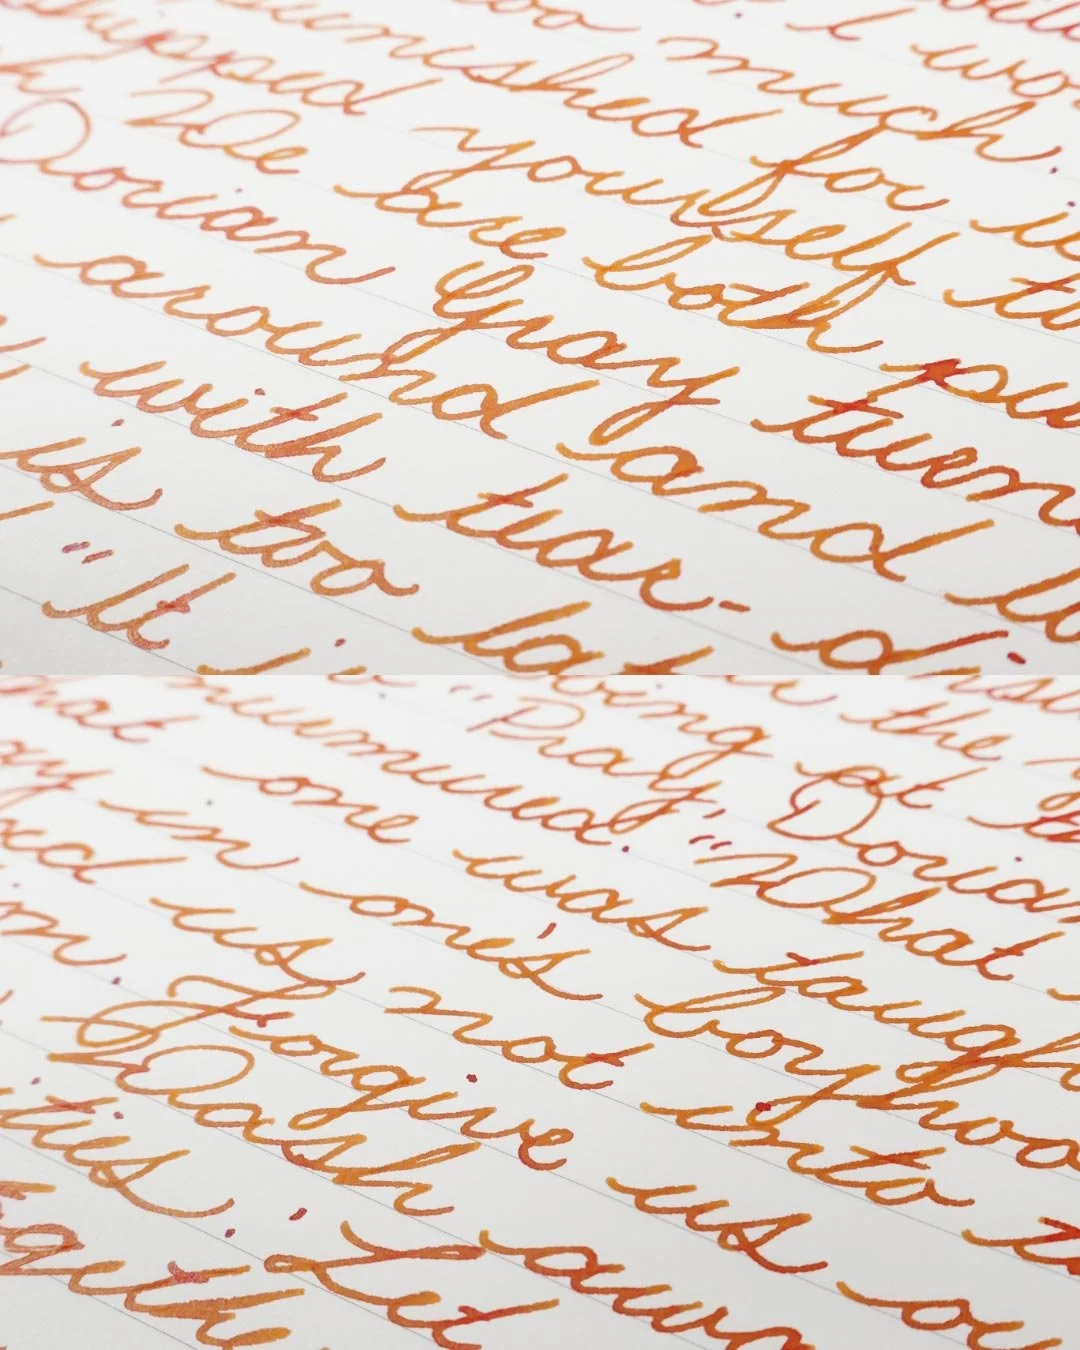 too much. I wo
punished for it
shipped yourself to
We are both pu
Dorian Gray turn
around and lo
with tear-di
is too lat
"It i
being at the
"Pray, Dorian
murmured, "What
that one was taugh
in one's boyhoo
us not into t
Forgive us ou
Wash awa
Let